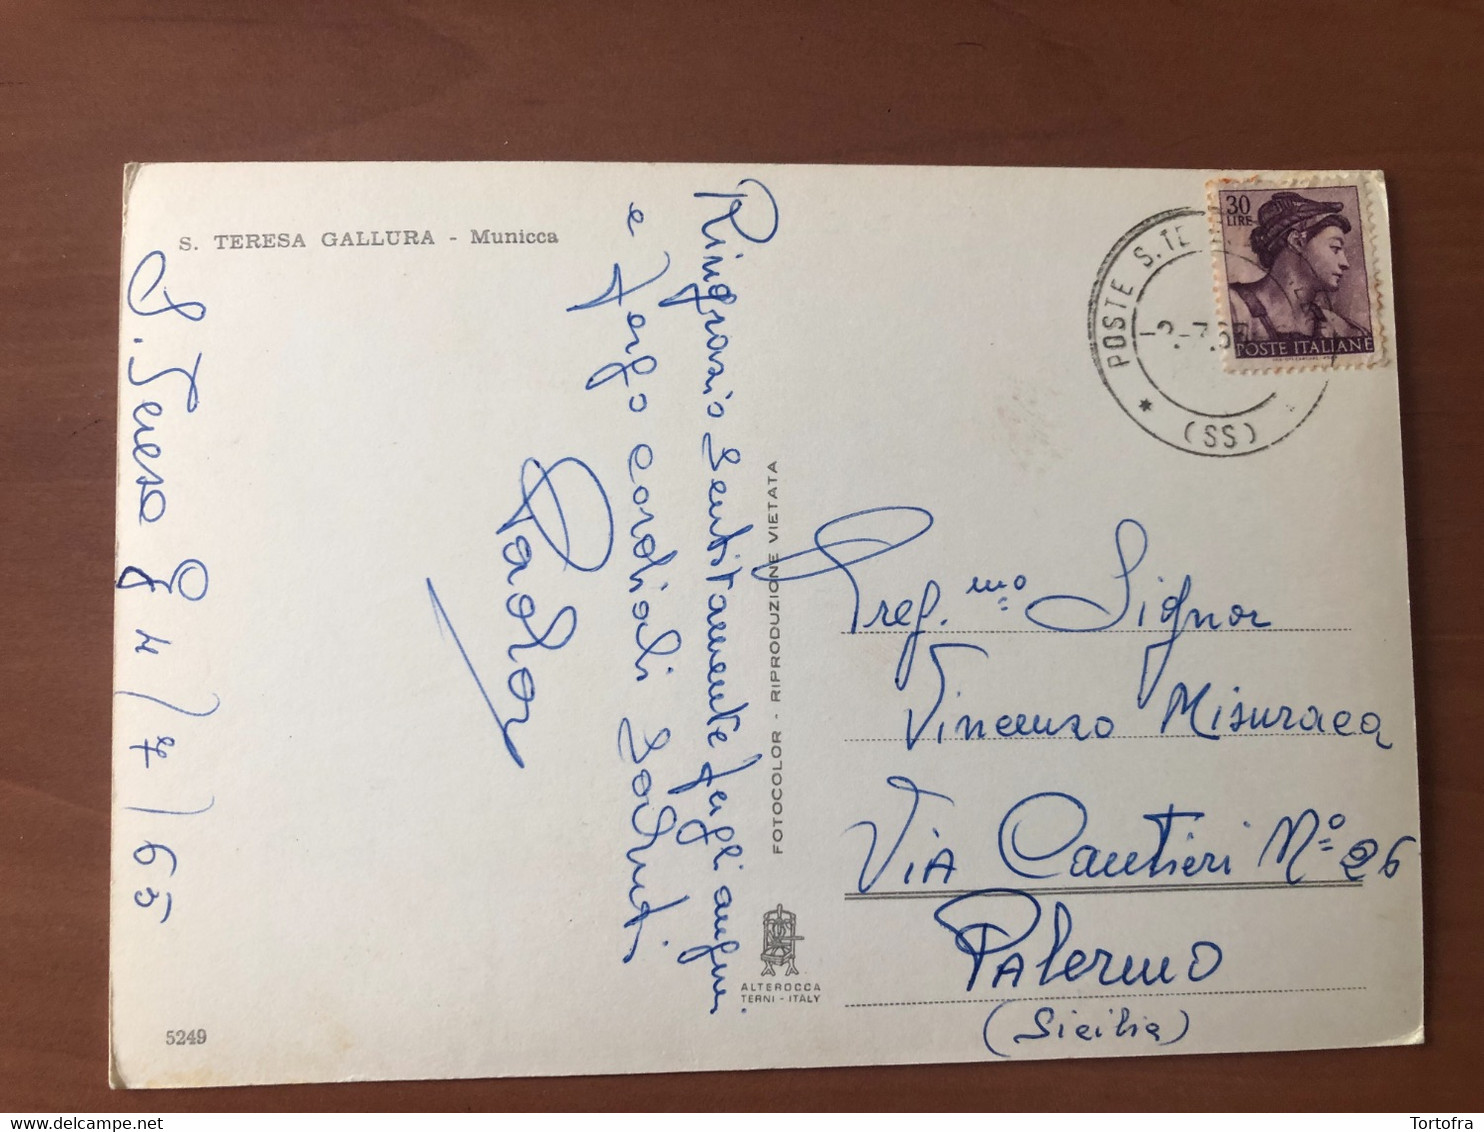 S. TERESA GALLURA - Municca
S. Teresa G 4/7/65
Ringrazio sentitamente degli auguri
e porgo cordiali saluti
FOTOCOLOR - RIPRODUZIONE VIETATA
ALTEROCCA
TERNI - ITALY
5249
30
LIRE
POSTE ITALIANE
POSTE S. TE
(SS)
Preg.mo Signor
Vincenzo Misuraca
Via Cantieri N° 26
Palermo
(Sicilia)
Tortofra